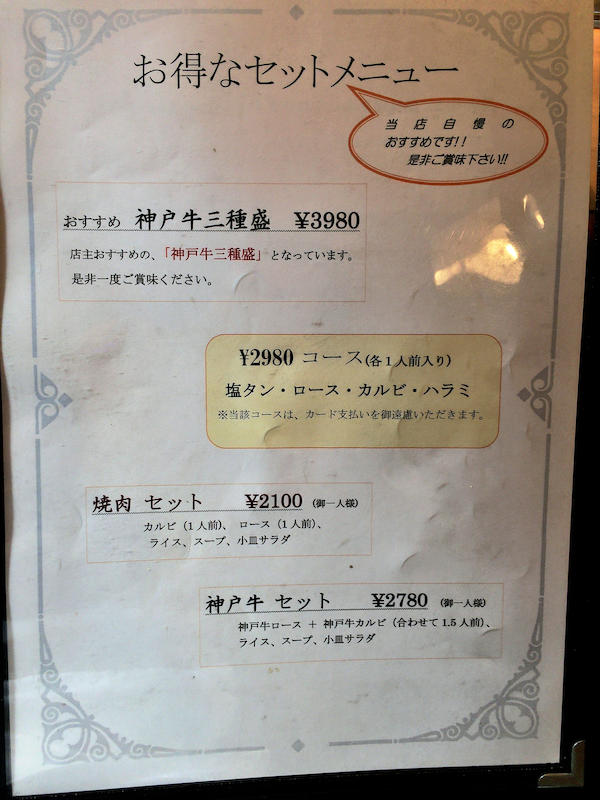 お得なセットメニュー
当店自慢の
おすすめです!!
是非ご賞味下さい!!
おすすめ 神戸牛三種盛 ¥3980
店主おすすめの、「神戸牛三種盛」となっています。
是非一度ご賞味ください。
¥2980 コース(各1人前入り)
塩タン・ロース・カルビ・ハラミ
※当該コースは、カード支払いを御遠慮いただきます。
焼肉 セット ¥2100 (御一人様)
カルビ(1人前)、ロース(1人前)、
ライス、スープ、小皿サラダ
神戸牛 セット ¥2780 (御一人様)
神戸牛ロース + 神戸牛カルビ(合わせて1.5人前)、
ライス、スープ、小皿サラダ